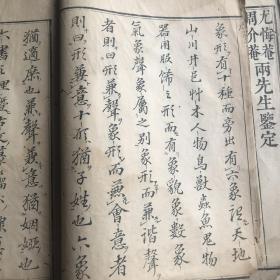 尤悔菴
周介菴兩先生鑒定
象形有十種而旁出有六象從天地
山川井邑艸木人物鳥獸蟲魚鬼物
器用服飾之形而有象貌象數象
氣象聲象屬之别象形而兼諧聲
者則曰形兼聲象形而兼會意者
則曰形兼意十形猶子姓也六象
猶適庶也兼聲兼意猶姻婭也